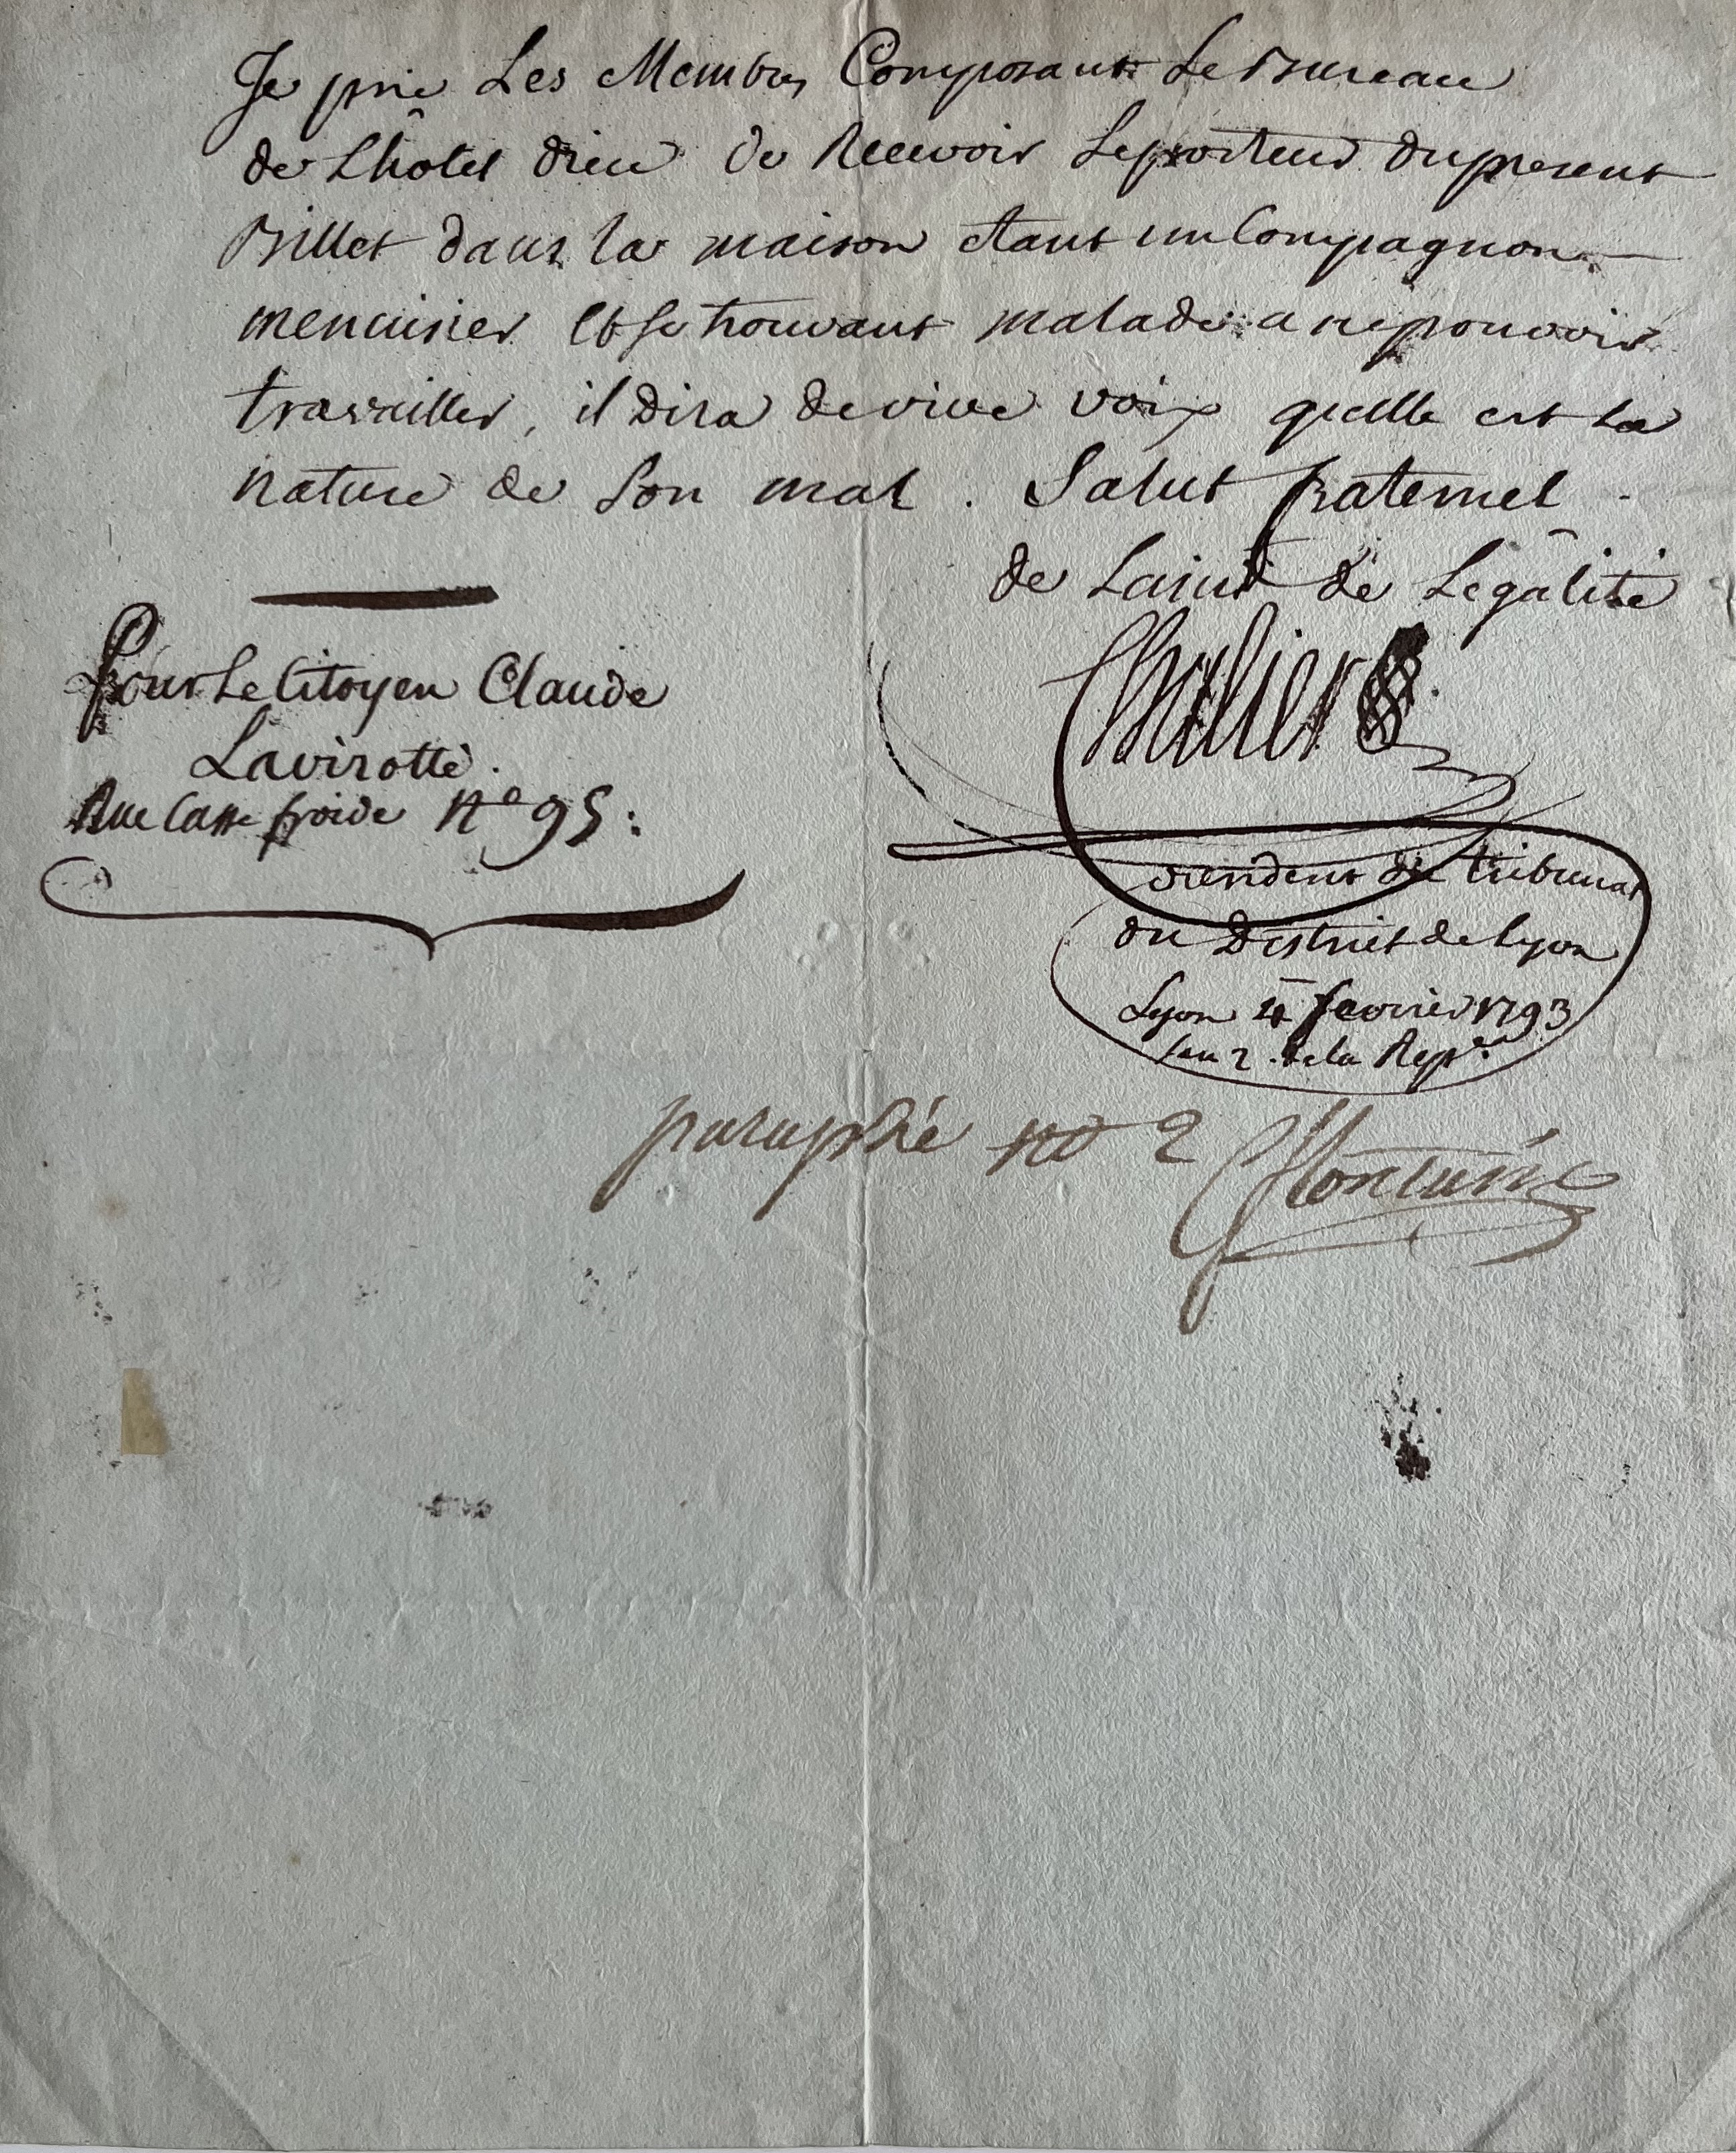 Je prie Les Membres Composant Le Bureau
de Lhôtel dieu de Recevoir Leporteur dupresent
Billet dans la maison etant un Compagnon
menuisier et se trouvant malade a nepouvoir
travailler, il Dira de vive voix quelle est la
nature de Son mal. Salut fraternel
de Lami de Legâlité
Chalier
president du tribunal
du District de Lyon
Lyon 4 fevrier 1793
lan 2 de la Repe.
Pour Le Citoyen Claude
Lavirotte.
Rue Casse froide No 95:
paraphé no 2